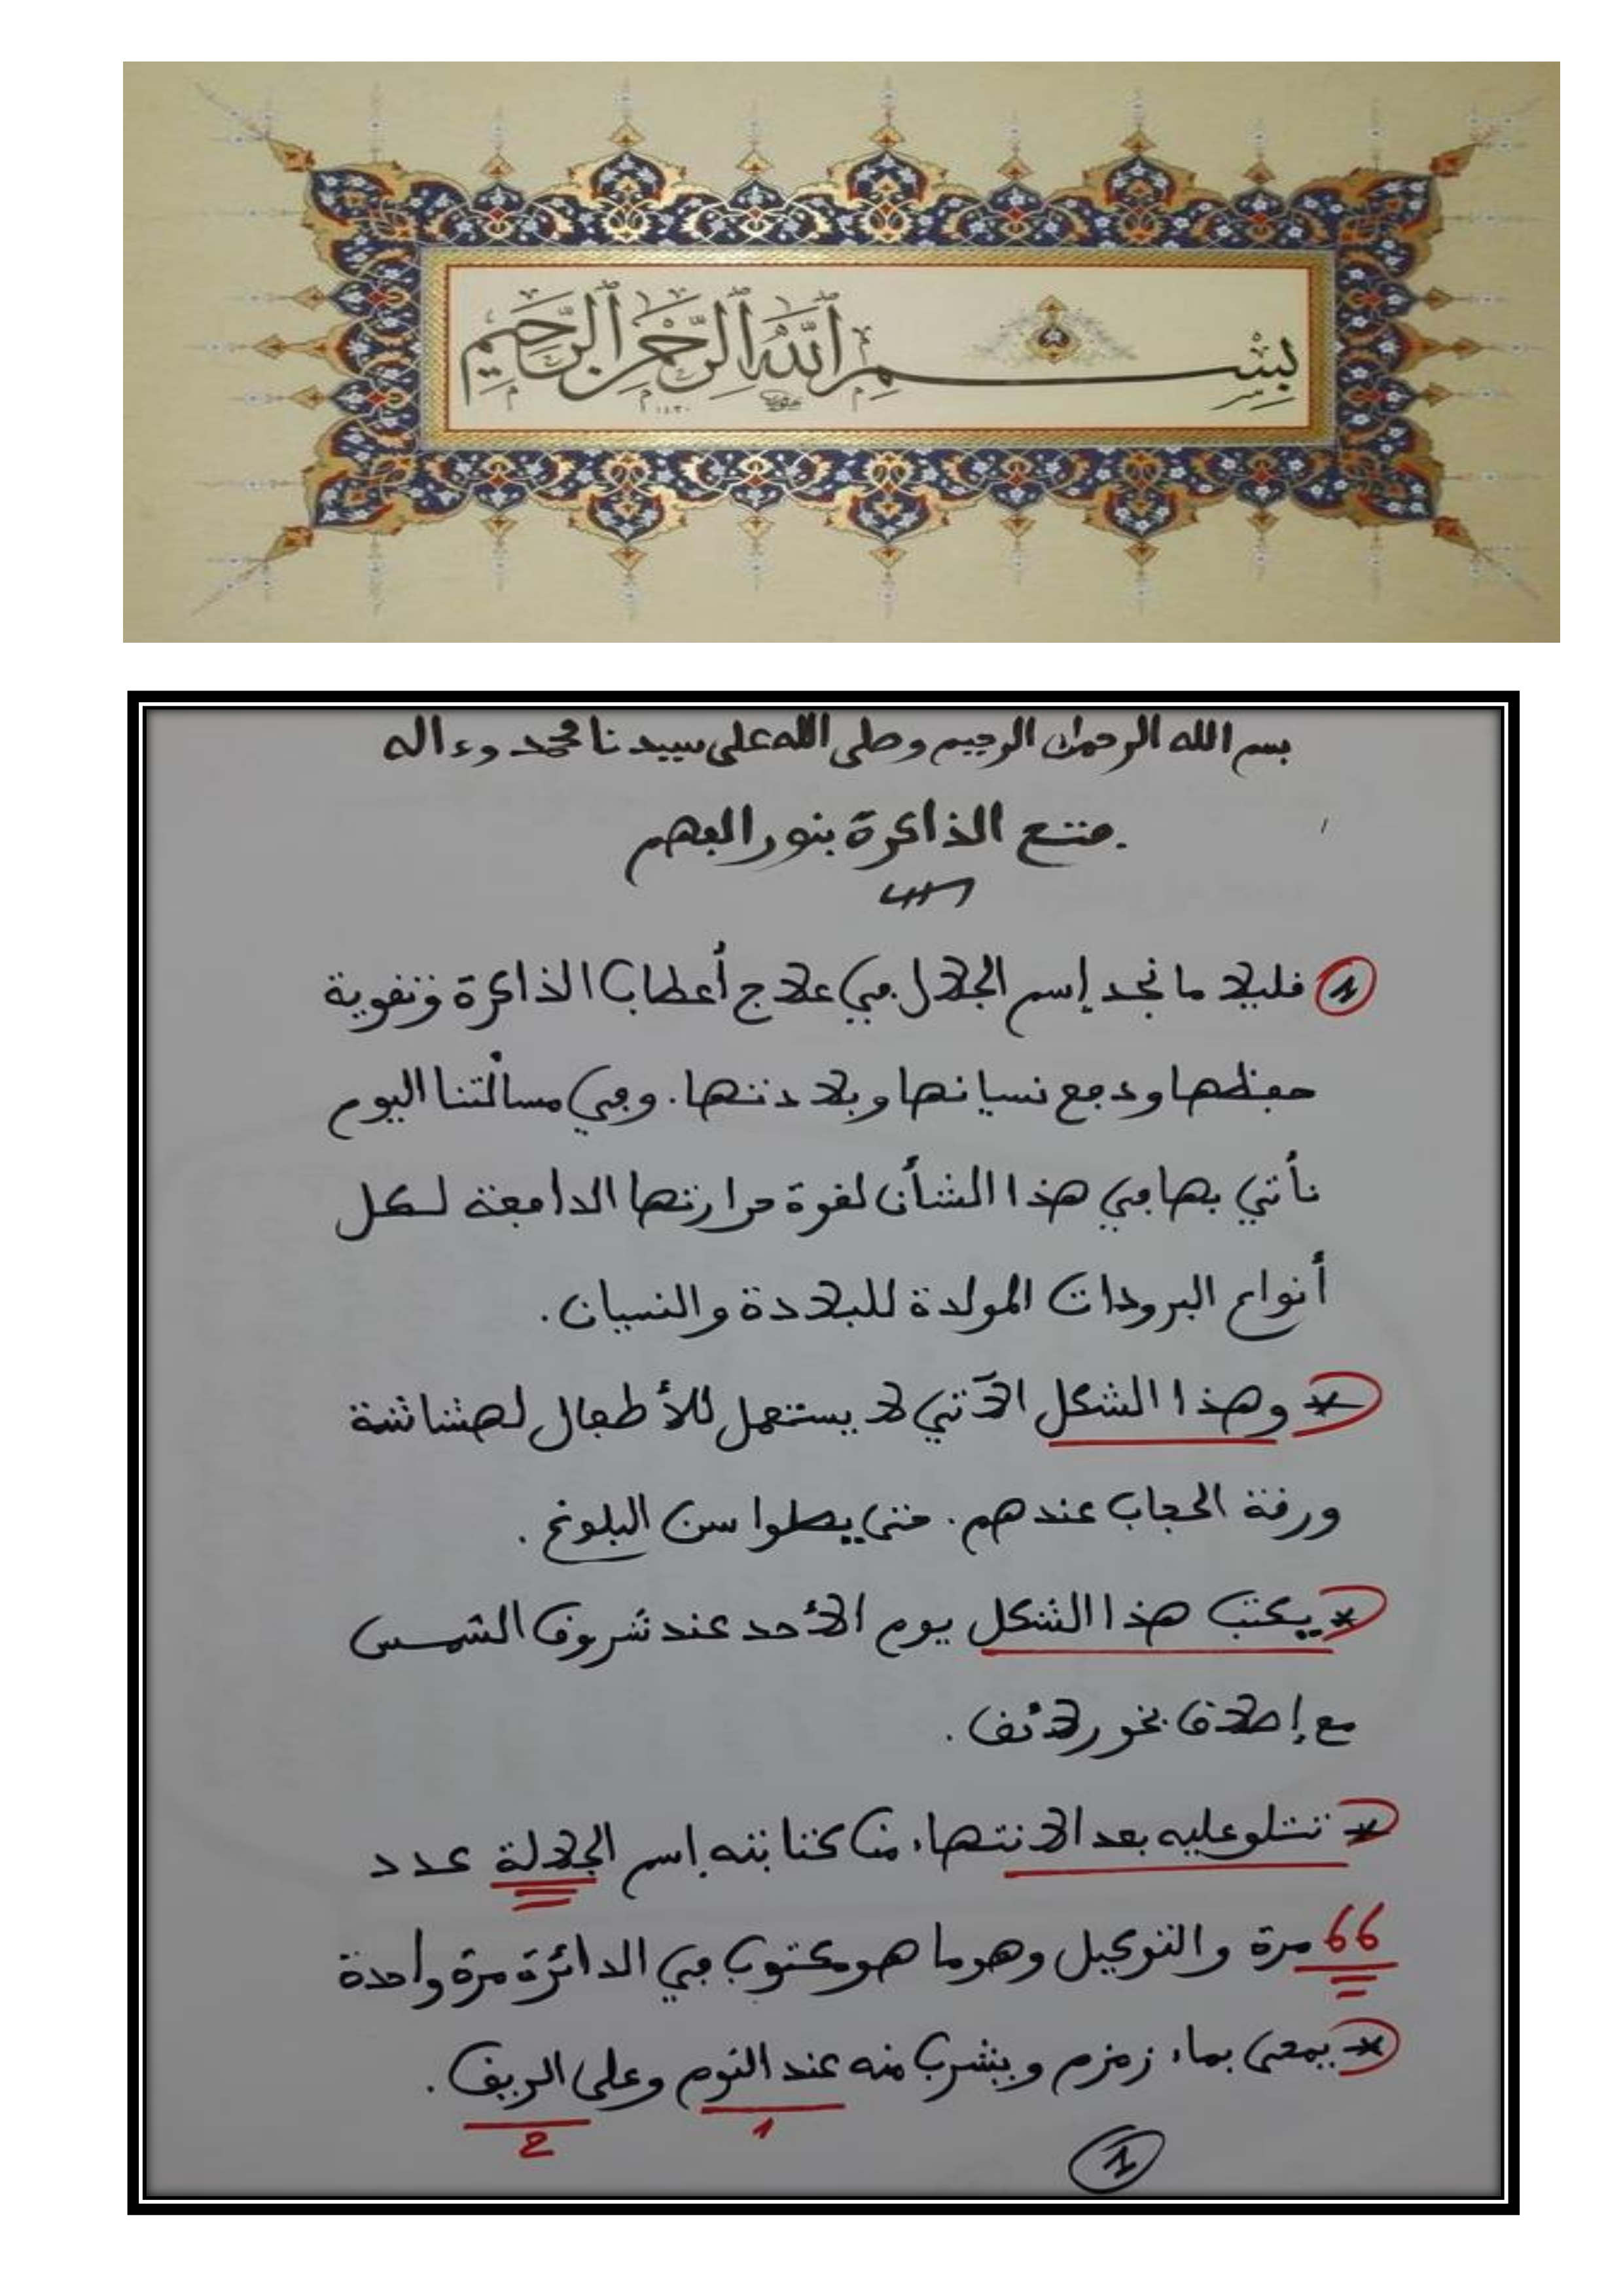 بِسْمِ اللَّهِ الرَّحْمَنِ الرَّحِيمِ
١٤٣٠
بسم الله الرحمن الرحيم وصلى الله على سيدنا محمد وءاله
فتح الذاكرة بنور الفهم
1 قليلا ما نجد إسم الجلال في علاج أعطاب الذاكرة وتقوية
حفظها ودفع نسيانها وبلادتها. وفي مسألتنا اليوم
نأتي بها في هذا الشأن لقوة حرارتها الدافعة لكل
أنواع البرودات المولدة للبلادة والنسيان.
* وهذا الشكل الآتي لا يستعمل للأطفال لهشاشة
ورقة الحجاب عندهم. حتى يصلوا سن البلوغ.
* يكتب هذا الشكل يوم الأحد عند شروق الشمس
مع إطلاق بخور لائق.
* تتلو عليه بعد الانتهاء من كتابته إسم الجلالة عدد
66 مرة والتوكيل وهو ما هو مكتوب في الدائرة مرة واحدة
* يمحى بماء زمزم ويشرب منه عند النوم وعلى الريق.
1 2
1